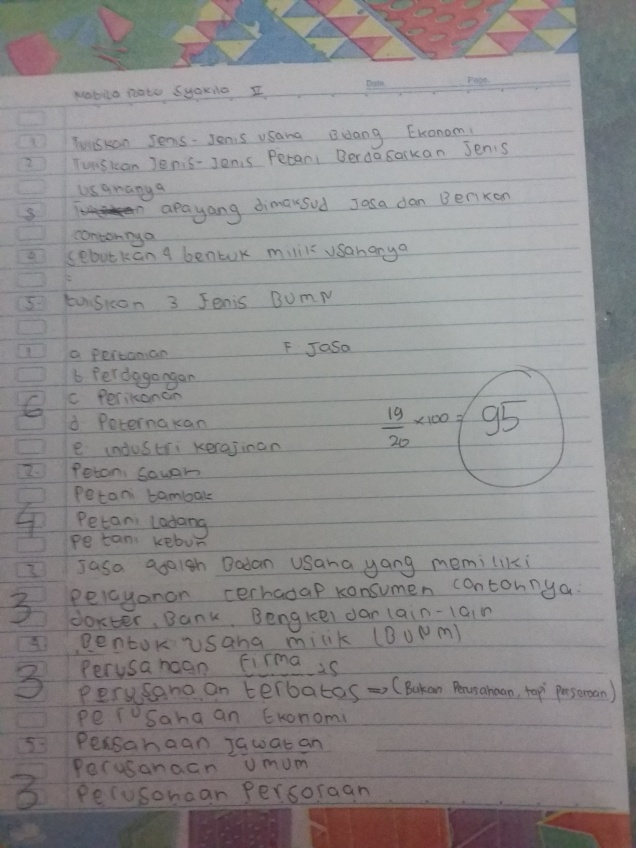 Nabila Ratu Syakila V
Date Page
1 Tuliskan Jenis-Jenis usaha Bidang Ekonomi
2 Tuliskan Jenis-Jenis Petani Berdasarkan Jenis
usahanya
3 apa yang dimaksud Jasa dan Berikan
contohnya
4 sebutkan 4 bentuk milik usahanya
5 tuliskan 3 Jenis BUMN
1 a Pertanian F Jasa
b Perdagangan
6 c Perikanan
d Peternakan
e industri kerajinan
19/20 x100 = 95
2 Petani sawah
Petani tambak
4 Petani Ladang
Petani kebun
3 Jasa adalah Badan usaha yang memiliki
3 pelayanan terhadap konsumen contohnya:
dokter, Bank, Bengkel dan lain-lain
4 Bentuk usaha milik (BUNM)
3 Perusahaan firma
Perusahaan terbatas => (Bukan Perusahaan, tapi perseroan)
Perusahaan Ekonomi
5 Persahaan Jawatan
Perusahaan umum
3 Perusahaan Persoroan